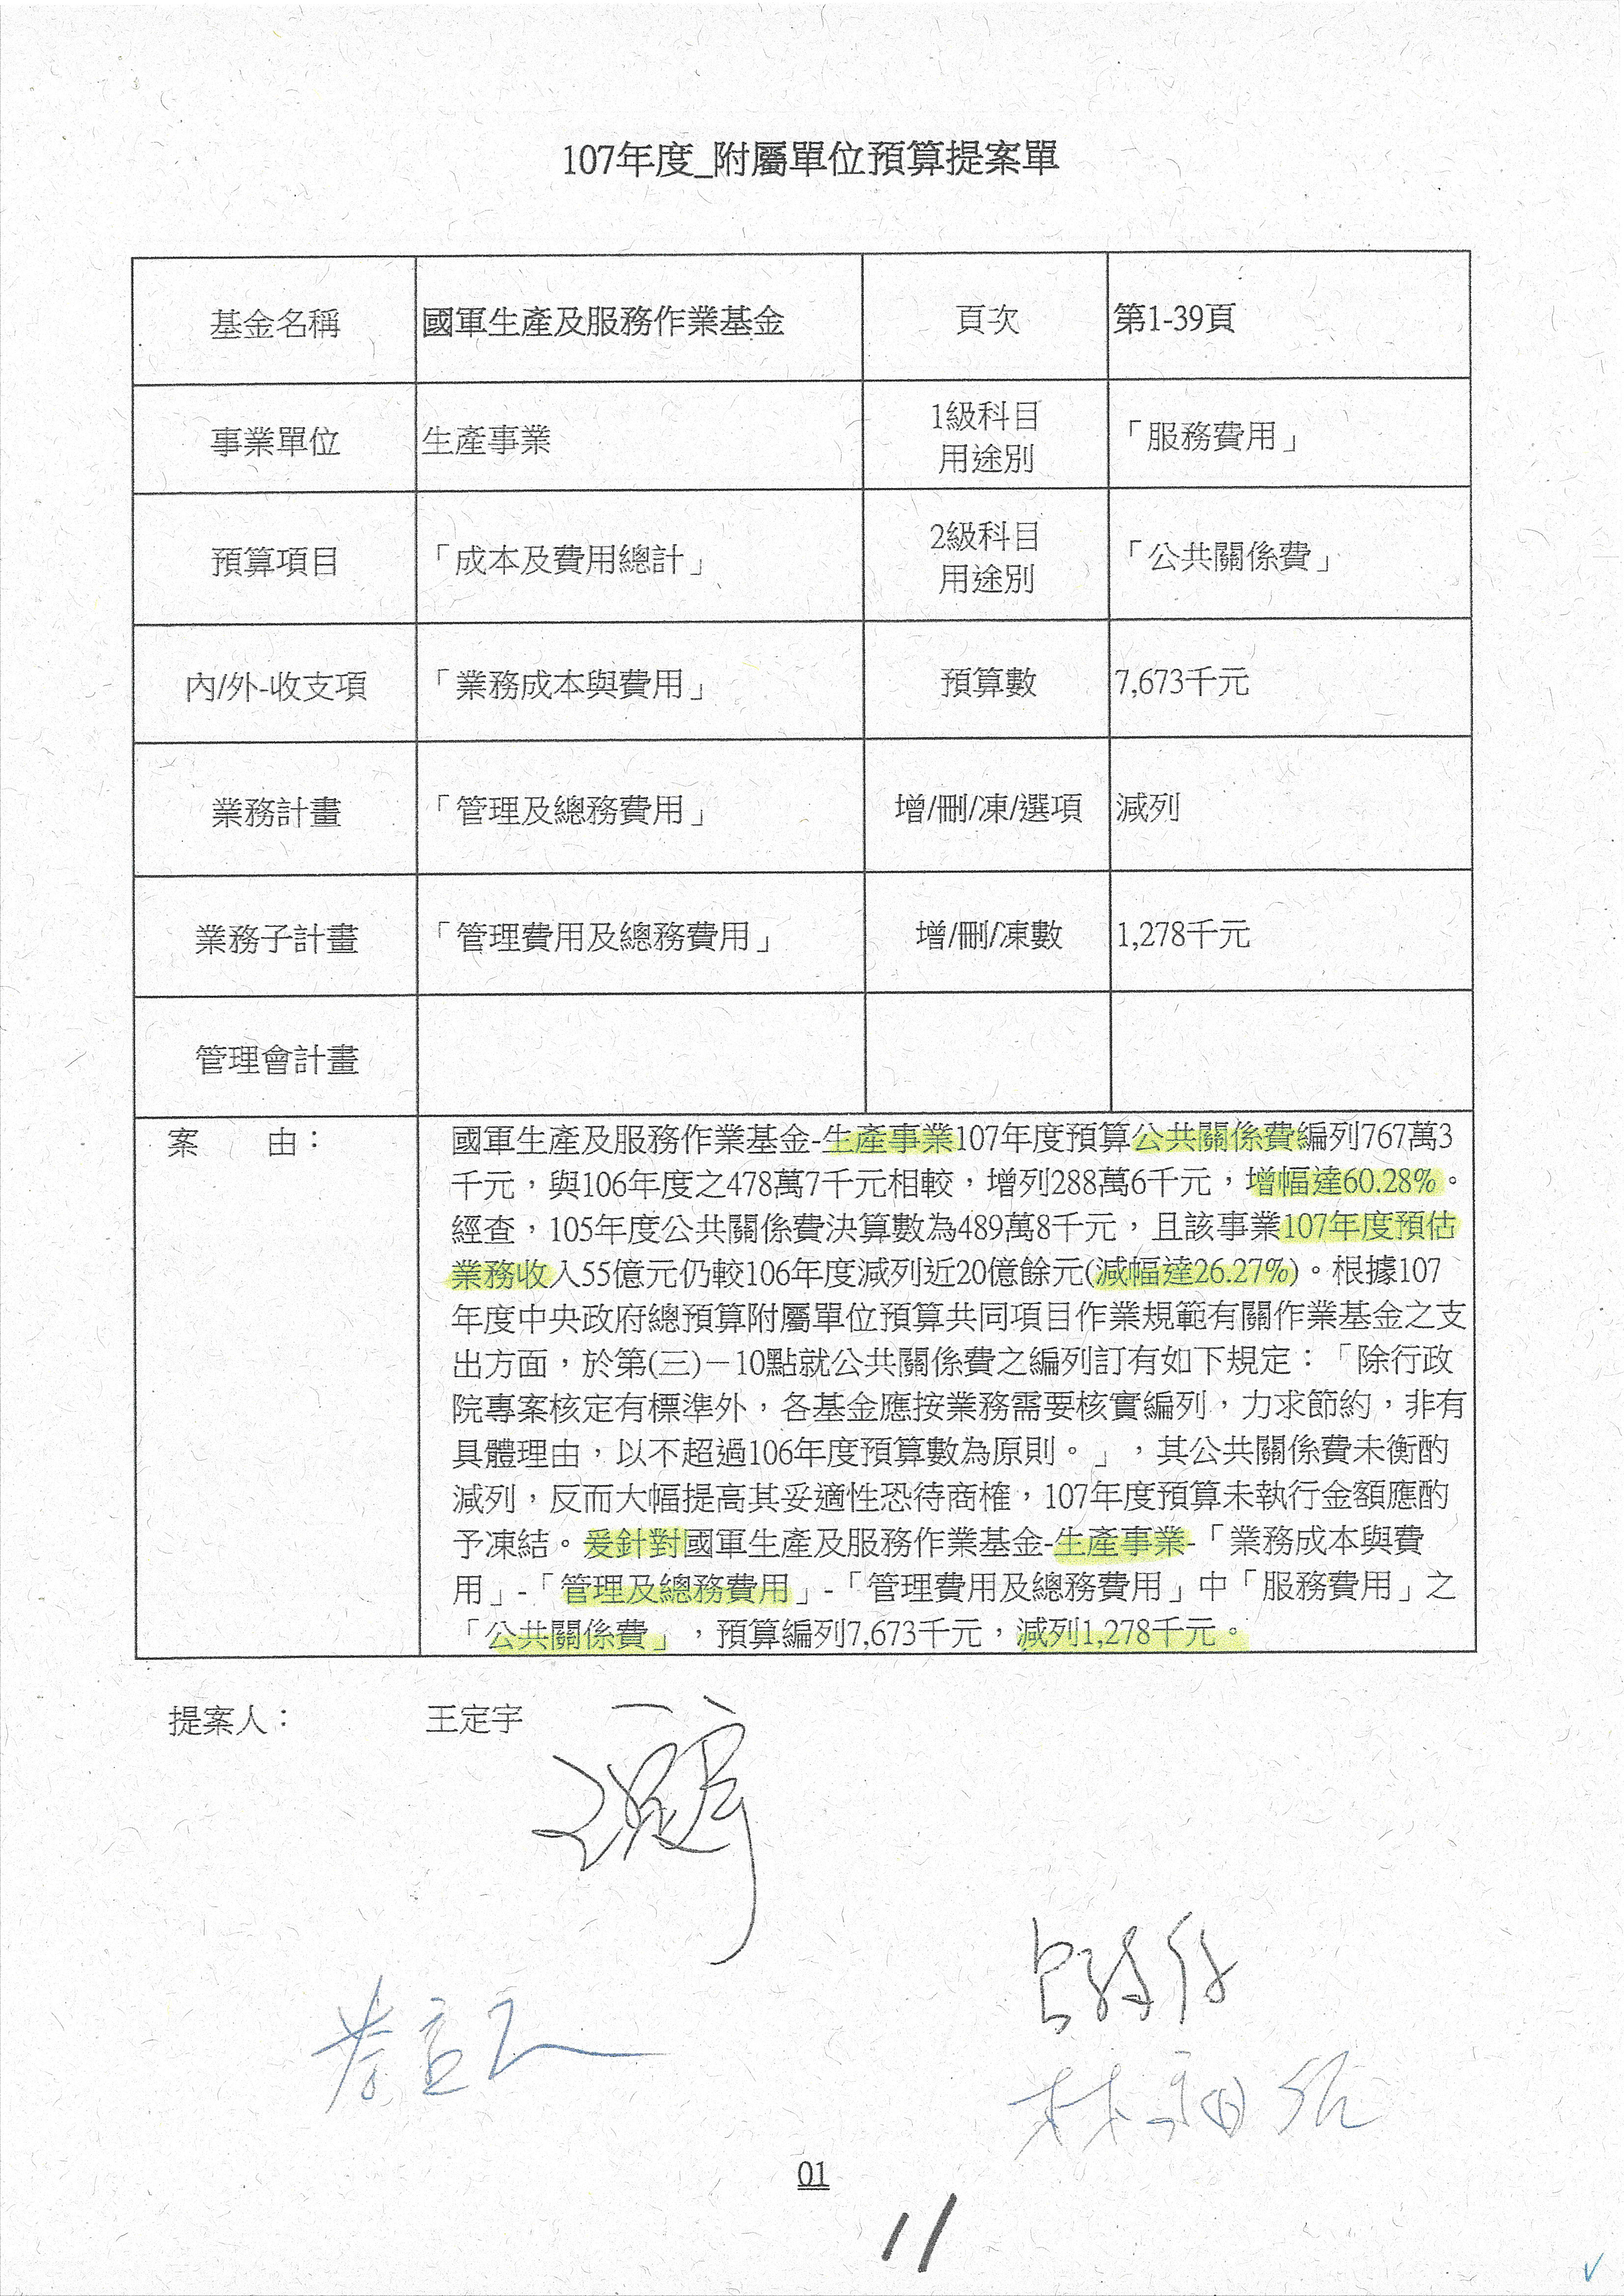 107年度_附屬單位預算提案單
基金名稱 國軍生產及服務作業基金 頁次 第1-39頁
事業單位 生產事業 1級科目 用途別 「服務費用」
預算項目 「成本及費用總計」 2級科目 用途別 「公共關係費」
內/外-收支項 「業務成本與費用」 預算數 7,673千元
業務計畫 「管理及總務費用」 增/刪/凍/選項 減列
業務子計畫 「管理費用及總務費用」 增/刪/凍數 1,278千元
管理會計畫
案 由： 國軍生產及服務作業基金-生產事業107年度預算公共關係費編列767萬3
千元，與106年度之478萬7千元相較，增列288萬6千元，增幅達60.28%。
經查，105年度公共關係費決算數為489萬8千元，且該事業107年度預估
業務收入55億元仍較106年度減列近20億餘元(減幅達26.27%)。根據107
年度中央政府總預算附屬單位預算共同項目作業規範有關作業基金之支
出方面，於第(三)－10點就公共關係費之編列訂有如下規定：「除行政
院專案核定有標準外，各基金應按業務需要核實編列，力求節約，非有
具體理由，以不超過106年度預算數為原則。」，其公共關係費未衡酌
減列，反而大幅提高其妥適性恐待商榷，107年度預算未執行金額應酌
予凍結。爰針對國軍生產及服務作業基金-生產事業-「業務成本與費
用」-「管理及總務費用」-「管理費用及總務費用」中「服務費用」之
「公共關係費」，預算編列7,673千元，減列1,278千元。
提案人： 王定宇
01
11